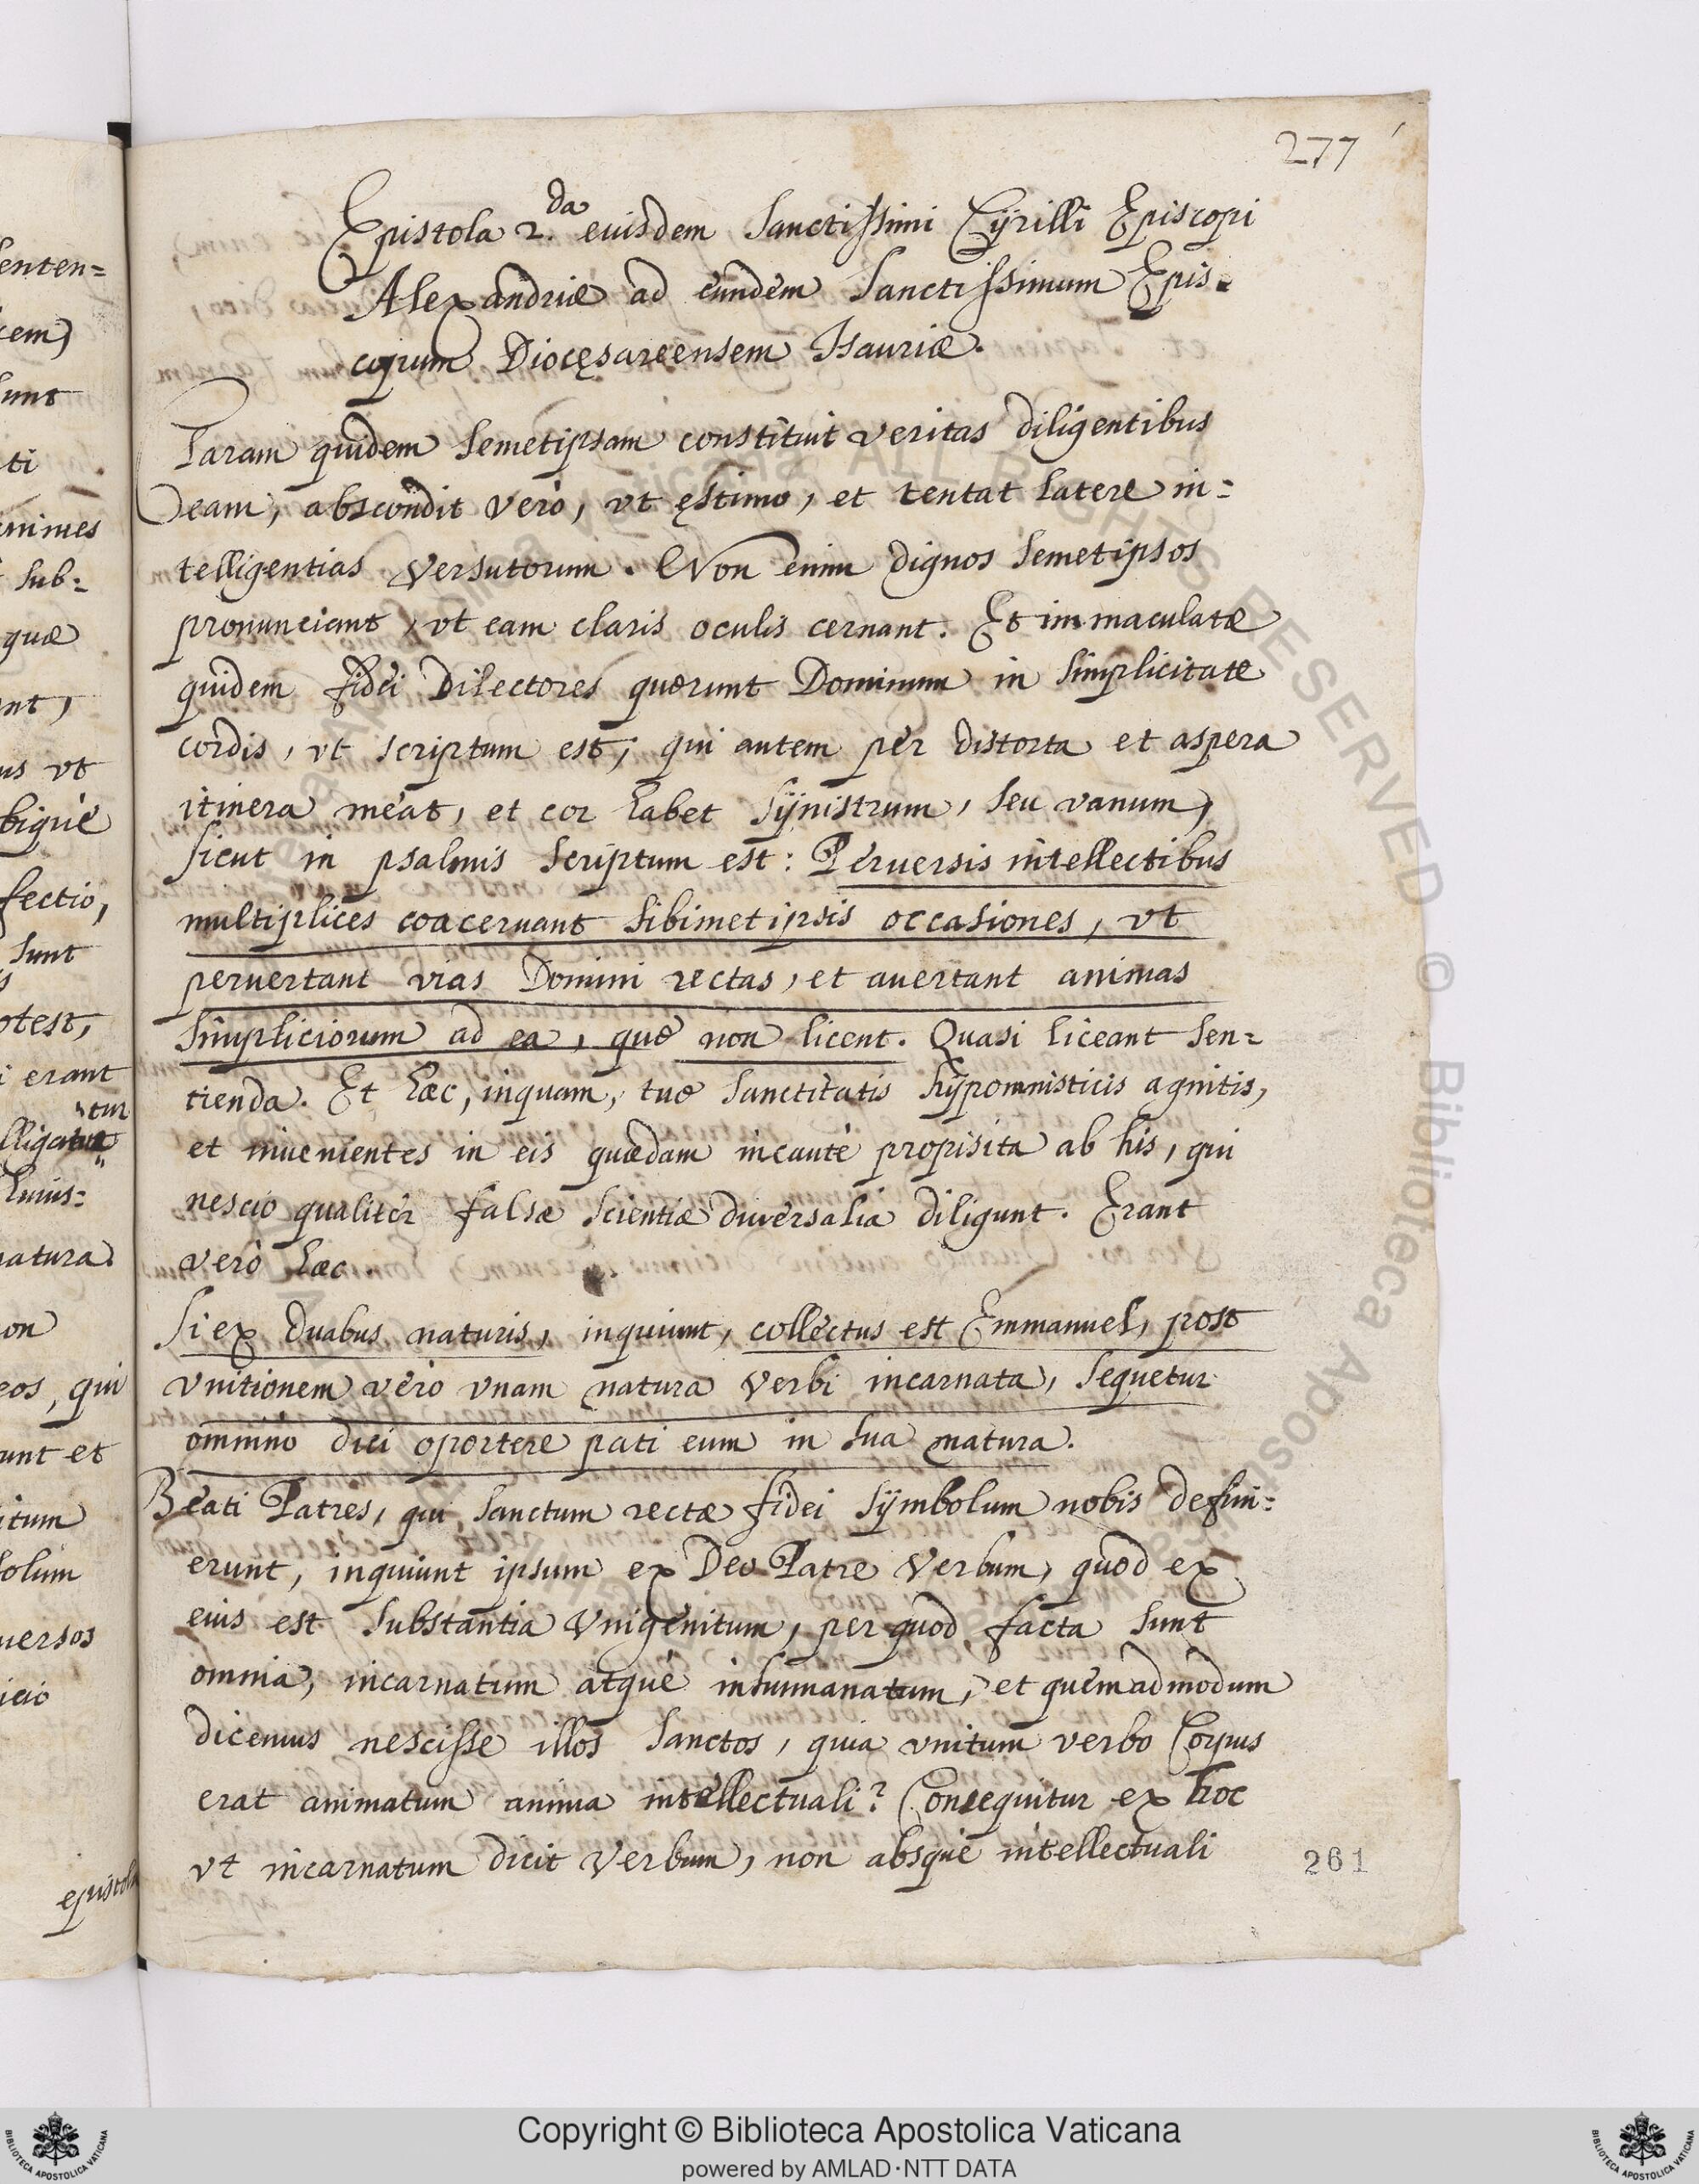 277
Epistola 2.da eiusdem Sanctissimi Cÿrilli Episcopi
Alexandriæ ad eundem Sanctissimum Epis-
copum Diocęsareensem Isauriæ.
Param quidem semetipsam constituit veritas diligentibus
eam, abscondit verò, vt ęstimo, et tentat latere in=
telligentias versutorum. Non enim dignos semetipsos
pronunciant, vt eam claris oculis cernant. Et immaculatæ
quidem fidei Dilectores quærunt Dominum in simplicitate
cordis, vt scriptum est; qui autem per distorta et aspera
itinera meat, et cor habet sÿnistrum, seu vanum,
sicut in psalmis scriptum est: Peruersis intellectibus
multiplices coaceruant sibimetipsis occasiones, vt
peruertant vias Domini rectas, et auertant animas
simpliciorum ad ea, quæ non licent. Quasi liceant sen=
tienda. Et hæc, inquam, tuæ sanctitatis hÿpomnisticis agnitis,
et inuenientes in eis quædam incautè propisita ab his, qui
nescio qualitèr falsæ scientiæ diuersalia diligunt. Erant
verò hæc.
Si ex duabus naturis, inquiunt, collectus est Emmanuel, post
vnitionem vero vnam natura verbi incarnata, sequetur
omninò dici oportere pati eum in sua natura.
Beati Patres, qui sanctum rectæ fidei sÿmbolum nobis defini=
erunt, inquiunt ipsum ex Deo Patre Verbum, quod ex
eius est substantia vnigenitum, per quod facta sunt
omnia, incarnatum atquè inhumanatum, et quemadmodum
dicemus nescisse illos sanctos, quia vnitum verbo Corpus
erat animatum anima intellectuali? Consequitur ex hoc
vt incarnatum dicit Verbum, non absquè intellectuali
261
enten=
cem)
sunt
ti
sub=
quæ
us vt
fectio,
sunt
erant
natura
qui
unt et
epistola
Copyright © Biblioteca Apostolica Vaticana
powered by AMLAD·NTT DATA